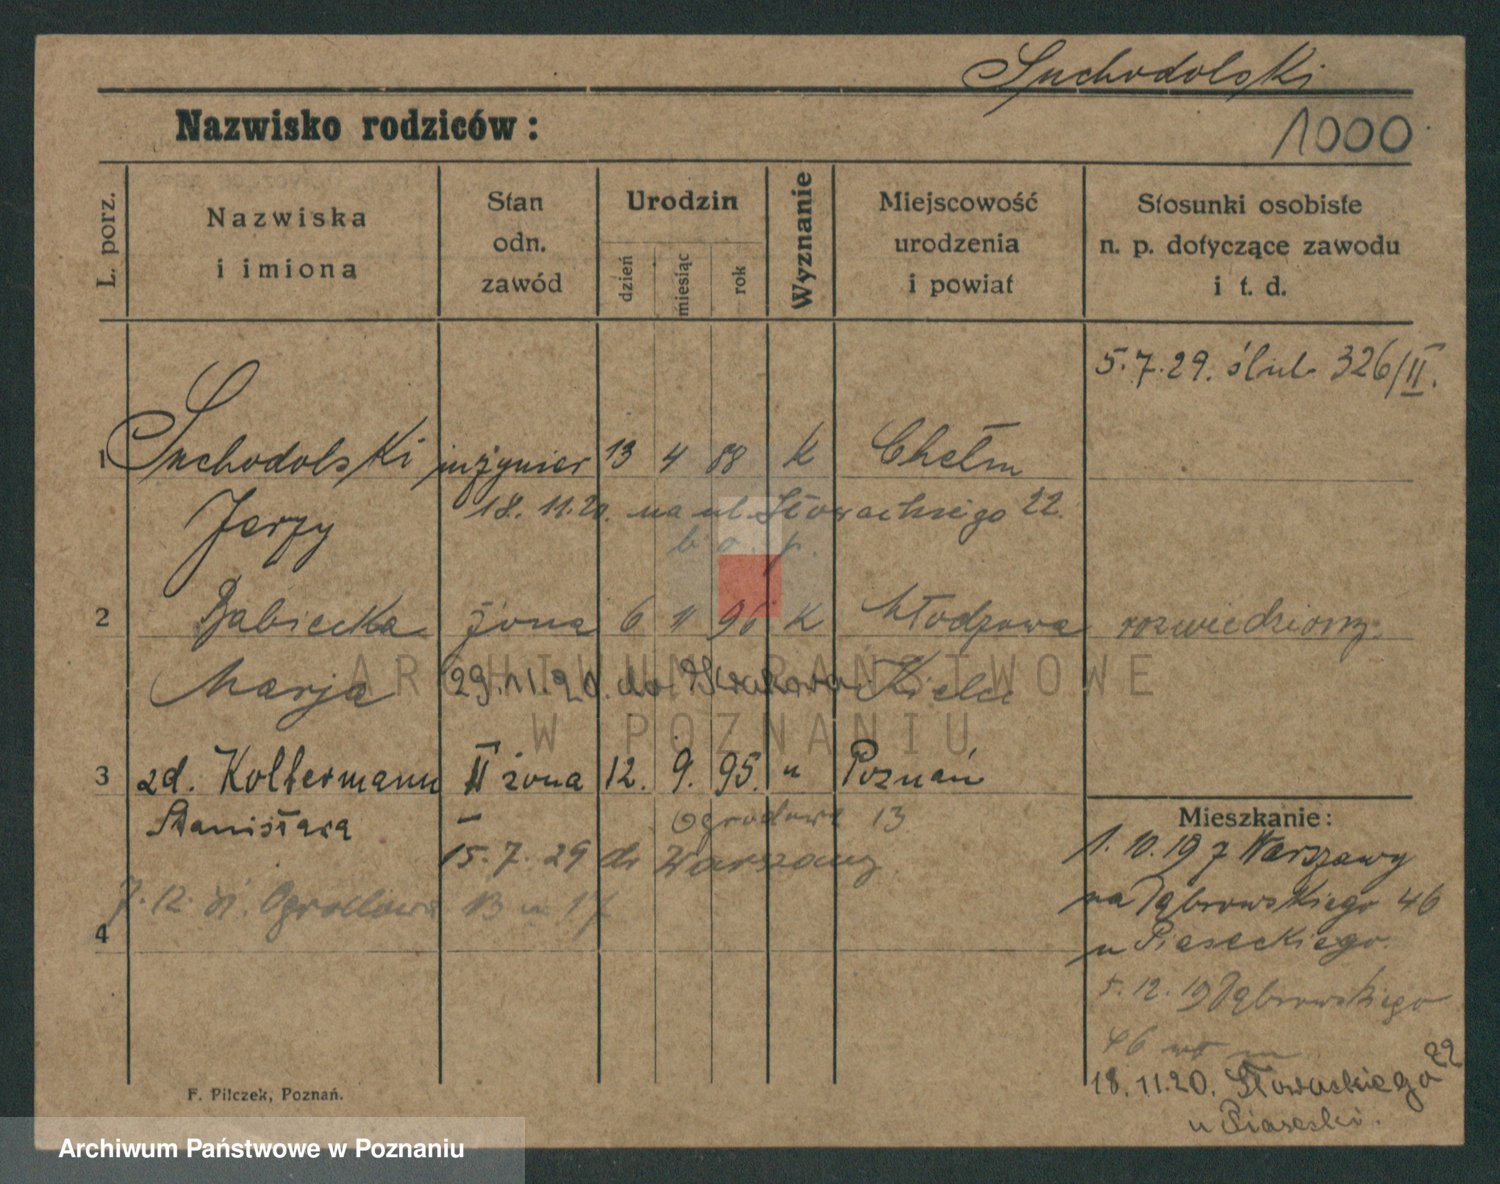 Suchodolski
Nazwisko rodziców:
1000
L. porz.
Nazwiska
i imiona
Stan
odn.
zawód
Urodzin
dzień
miesiąc
rok
Wyznanie
Miejscowość
urodzenia
i powiat
Stosunki osobiste
n. p. dotyczące zawodu
i t. d.
5.7.29. ślub 326/II.
1 Suchodolski inżynier 13 4 88 K Chełm
Jerzy 18. 11.20. na ul. Słowackiego 22.
b. o. p.
2 Babiecka żona 6 11 96 K Włodzowa rozwiedziony.
Marja 29.11.20. do Krakowa. Kielce
3 zd. Koltermann II żona 12. 9. 95. " Poznań
Stanisława Ogrodowa 13
15. 7. 29 do Warszawy.
7.12. Ogrodowa 13 m 17
4
Mieszkanie:
1. 10. 19 z Warszawy
na Dąbrowskiego 46
u Piaseckiego.
5. 12. 19 Dąbrowskiego
46
18. 11. 20. Słowackiego 22
u Piasecki.
F. Pilczek, Poznań.
ARCHIWUM PAŃSTWOWE
W POZNANIU
Archiwum Państwowe w Poznaniu